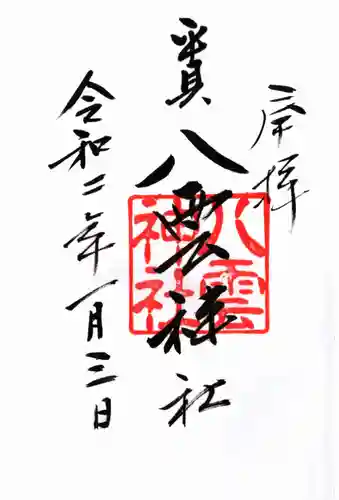 奉拝
貫 八雲神社
令和二年一月三日
八雲
神社